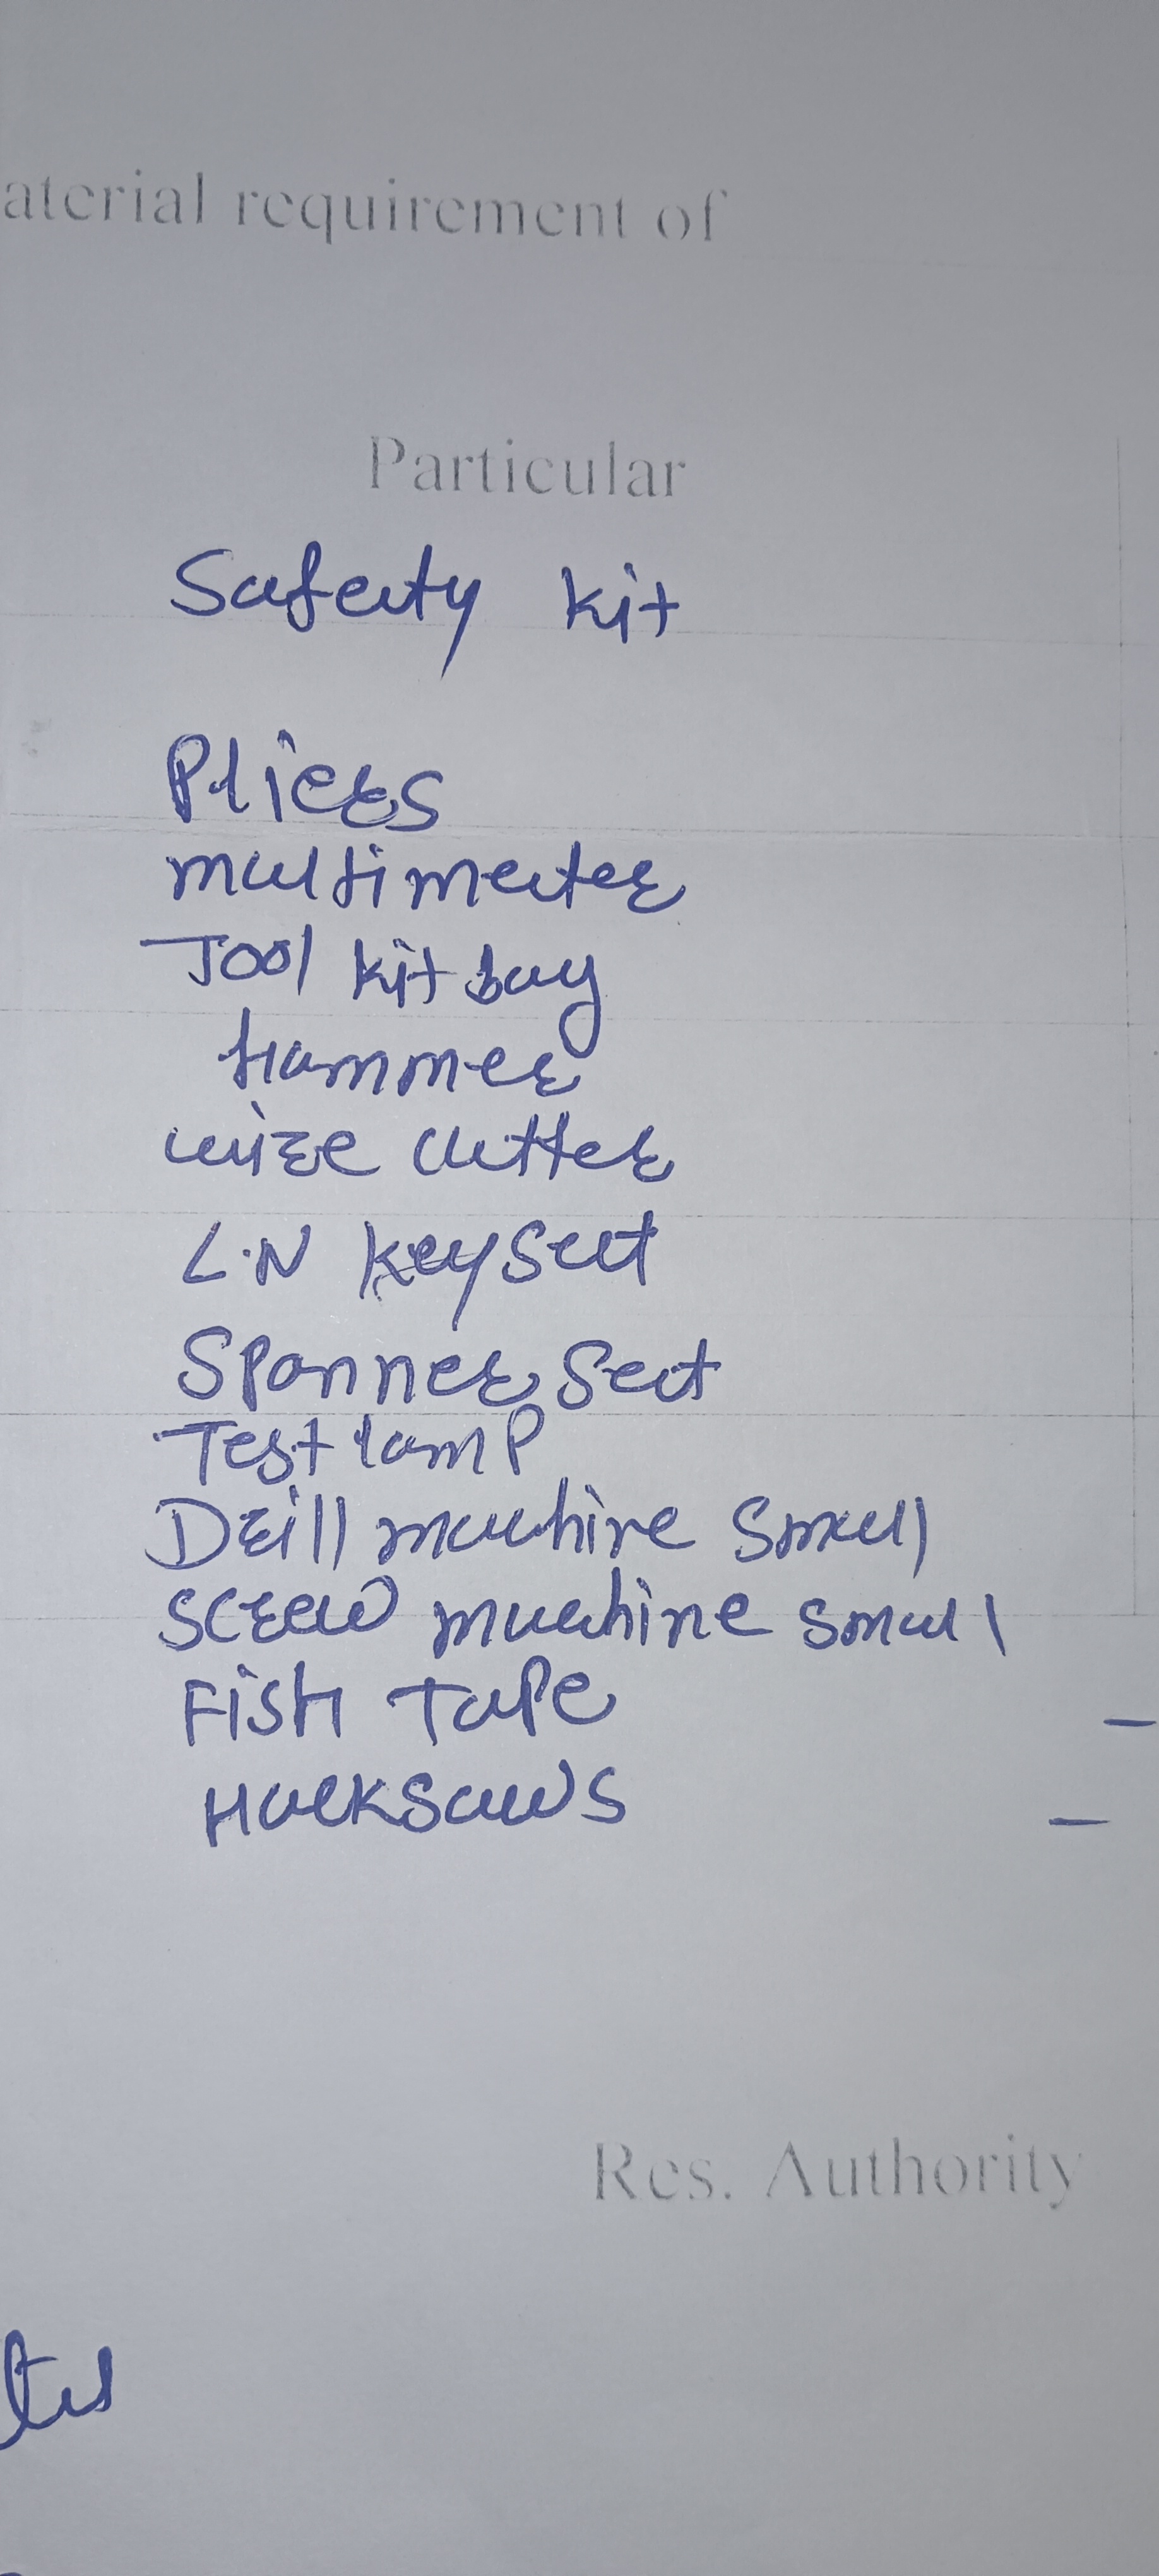 aterial requirement of
Particular
Safety kit
Pliers
multimeter
Tool kit bag
hammer
wire cutter
L.N key set
Spanner set
Test lamp
Drill machine small
screw machine small
Fish Tape
Hacksaws
Res. Authority